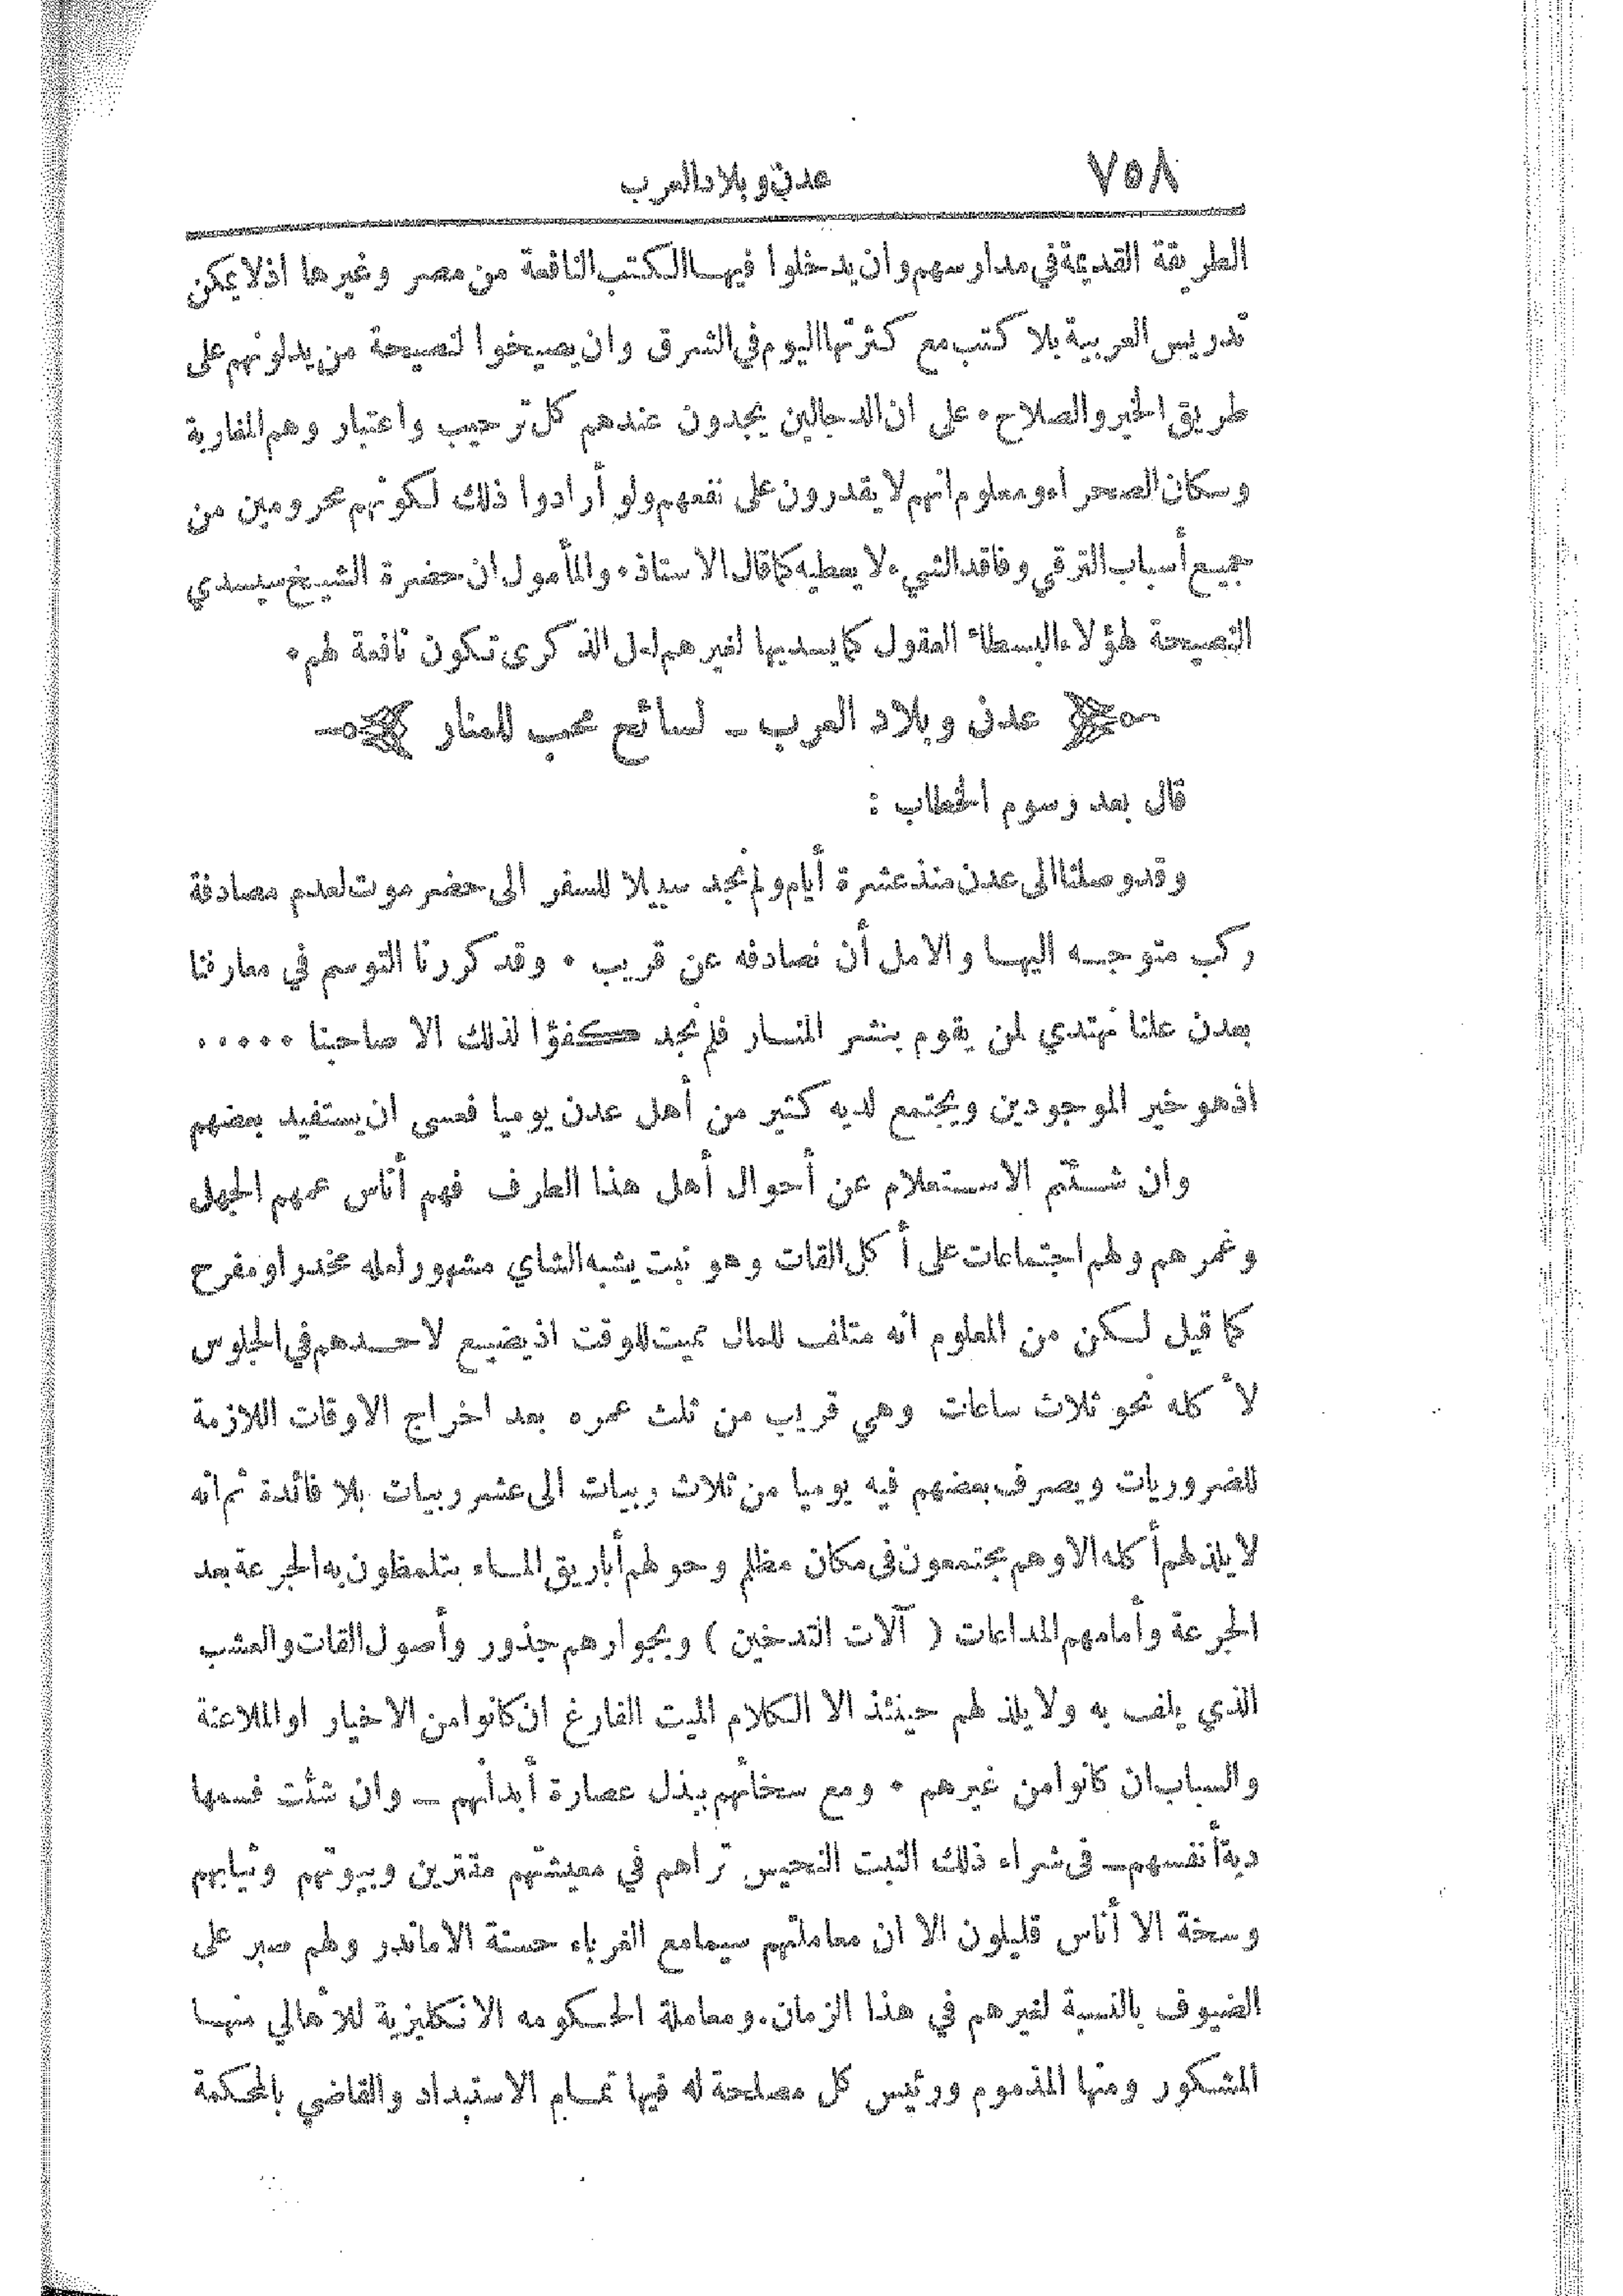 ٧٥٨ عدن وبلاد العرب
الطريقة القديمة في مدارسهم وان يدخلوا فيها الكتب النافعة من مصر وغيرها اذ لا يمكن
تدريس العربية بلا كتب مع كثرتها اليوم في الشرق وان يصيخوا لنصيحة من يدلونهم على
طريق الخير والصلاح ٠ على ان الدجالين يجدون عندهم كل ترحيب واعتبار وهم المغاربة
وسكان الصحراء ومعلوم انهم لا يقدرون على نفعهم ولو أرادوا ذلك لكونهم محرومين من
جميع أسباب الترقي وفاقد الشيء لا يعطيه كما قال الاستاذ ٠ والمأمول ان حضرة الشيخ سيسدي
النصيحة لهؤلاء البسطاء العقول كما يسديها لغيرهم لعل الذكرى تكون نافعة لهم ٠
عدن وبلاد العرب ــ لسائح محب للمنار
قال بعد رسوم الخطاب :
وقد وصلنا الى عدن منذ عشرة أيام ولم نجد سبيلا للسفر الى حضرموت لعدم مصادفة
ركب متوجه اليها والامل أن نصادفه عن قريب ٠ وقد كررنا التوسم في معارفنا
بعدن علنا نهتدي لمن يقوم بنشر المنار فلم نجد كفؤا لذلك الا صاحبنا ٠٠٠٠٠
اذ هو خير الموجودين ويجتمع لديه كثير من أهل عدن يوميا فعسى ان يستفيد بعضهم
وان شئتم الاستعلام عن أحوال أهل هذا الطرف فهم أناس عمهم الجهل
وغمرهم ولهم اجتماعات على أكل القات وهو نبت يشبه الشاي مشهور لعله مخدر او مفرح
كما قيل لكن من المعلوم انه متلف للمال مميت للوقت اذ يضيع لاحدهم في الجلوس
لأكله نحو ثلاث ساعات وهي قريب من ثلث عمره بعد اخراج الاوقات اللازمة
للضروريات ويصرف بعضهم فيه يوميا من ثلاث ربيات الى عشر ربيات بلا فائدة ثم انه
لا يلذ لهم أكله الا وهم مجتمعون في مكان مظلم وحولهم أباريق الماء يتلمظون به الجرعة بعد
الجرعة وأمامهم المداعات ( آلات التدخين ) وبجوارهم جذور وأصول القات والعشب
الذي يلف به ولا يلذ لهم حينئذ الا الكلام الميت الفارغ ان كانوا من الاخيار او الملاعنة
والسباب ان كانوا من غيرهم ٠ ومع سخائهم ببذل عصارة أبدانهم ــ وان شئت فسمها
دية أنفسهم ــ في شراء ذلك النبت النحيس تراهم في معيشتهم مقترين وبيوتهم وثيابهم
وسخة الا أناس قليلون الا ان معاملتهم سيما مع الغرباء حسنة الا ما ندر ولهم صبر على
الضيوف بالنسبة لغيرهم في هذا الزمان ٠ ومعاملة الحكومه الانكليزية للاهالي منها
المشكور ومنها المذموم ورئيس كل مصلحة له فيها تمام الاستبداد والقاضي بالمحكمة